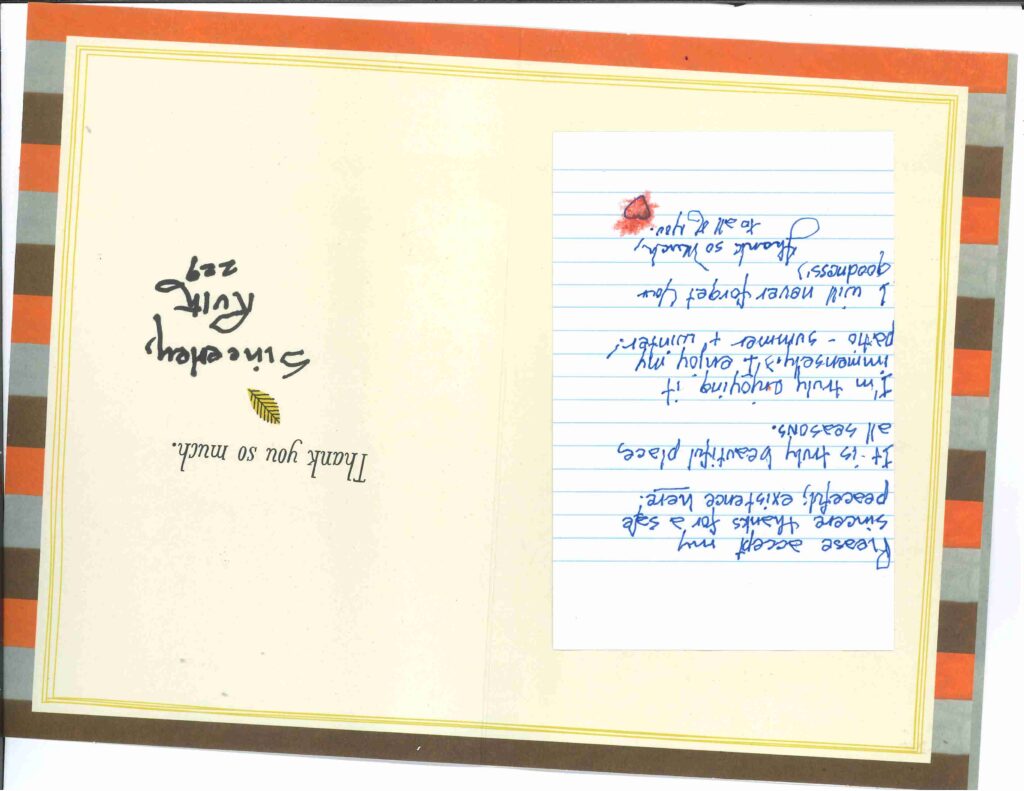 Please accept my
sincere thanks for a safe
peaceful; existence here.
It is truly beautiful place,
all seasons.
I'm truly enjoying it
immensely. I enjoy my
patio - summer + winter!
I will never forget your
goodness')
Thank so Much,
to all of you.
Thank you so much.
Sincerley,
Ruth
229